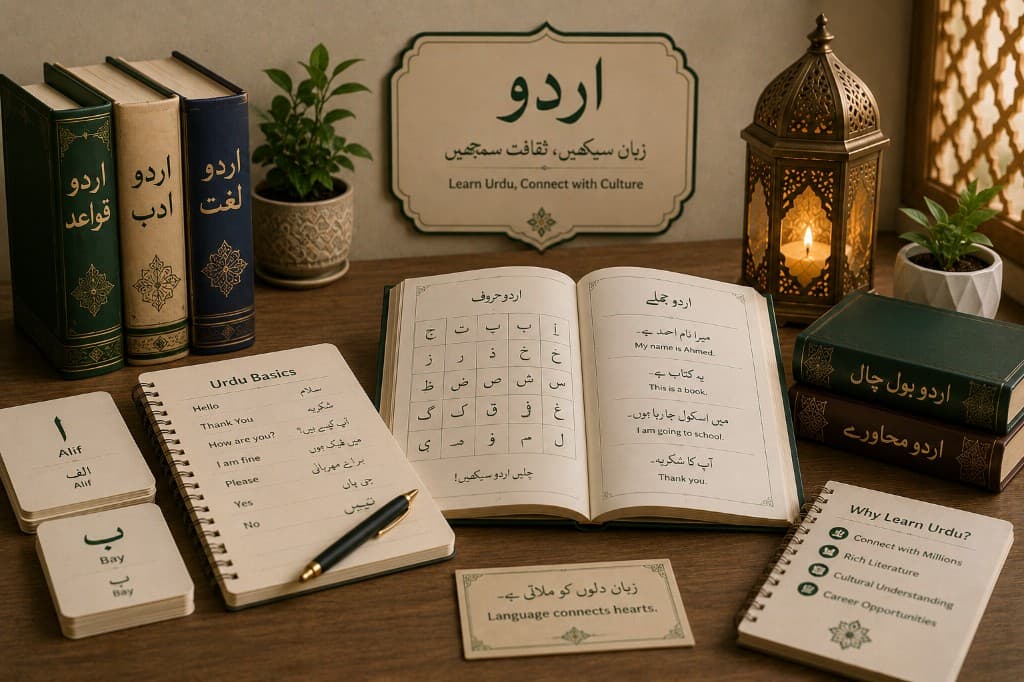 اردو
زبان سیکھیں، ثقافت سمجھیں
Learn Urdu, Connect with Culture
اردو
قواعد
اردو
ادب
اردو
لغت
ا
Alif
الف
Alif
ب
Bay
ب
Bay
Urdu Basics
Hello سلام
Thank You شکریہ
How are you? آپ کیسے ہیں؟
I am fine میں ٹھیک ہوں
Please برائے مہربانی
Yes جی ہاں
No
اردو حروف
ب ت ج
خ خ ذ ر ز
س ش ص ض ظ
غ ق ک گ
ل م و
چلیں اردو سیکھیں!
اردو جملے
میرا نام احمد ہے۔
My name is Ahmed.
یہ کتاب ہے۔
This is a book.
میں اسکول جا رہا ہوں۔
I am going to school.
آپ کا شکریہ۔
Thank you.
اردو بول چال
اردو محاورے
زبان دلوں کو ملاتی ہے۔
Language connects hearts.
Why Learn Urdu?
Connect with Millions
Rich Literature
Cultural Understanding
Career Opportunities